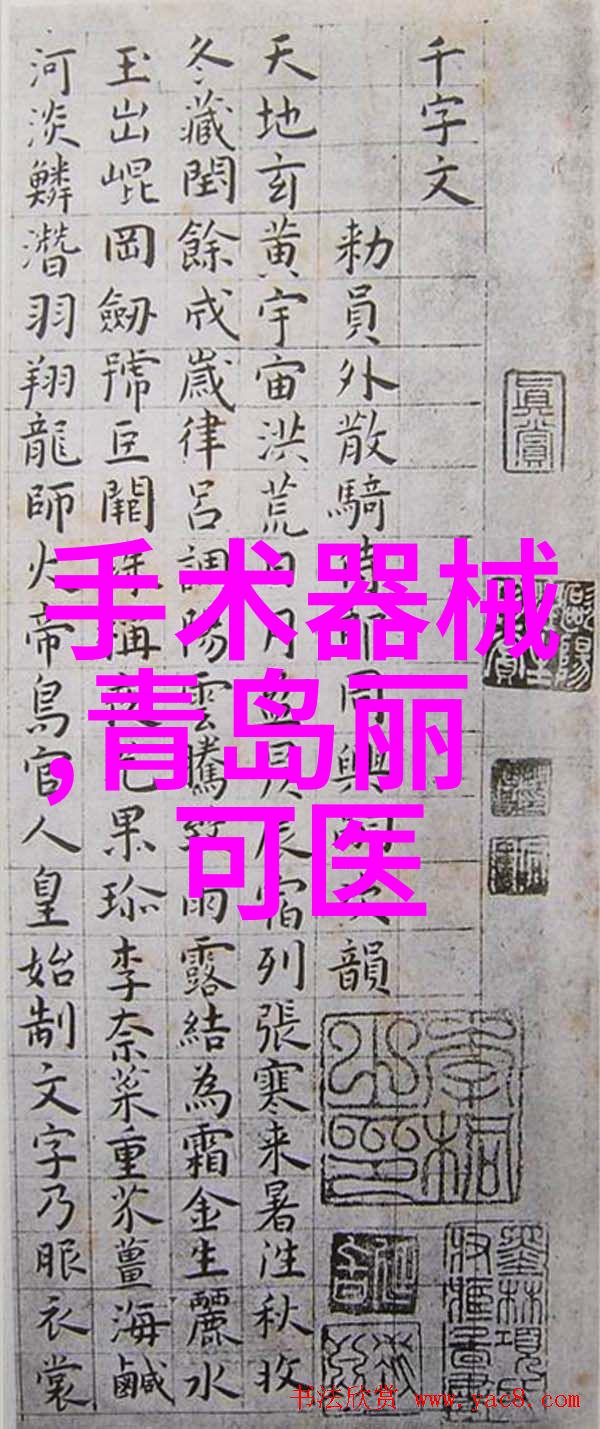 千字文
勑員外散騎侍郎周興嗣次韻
天地玄黃宇宙洪荒日月盈昃辰宿列張寒来暑往秋收
冬藏閏餘成歲律呂調陽雲騰致雨露結為霜金生麗水
玉出崐岡劒號巨闕珠稱夜光果珎李柰菜重芥薑海鹹
河淡鱗潛羽翔龍師火帝鳥官人皇始制文字乃服衣裳
真賞
手术器械
,青岛丽
可医
书法欣赏 www.yac8.com